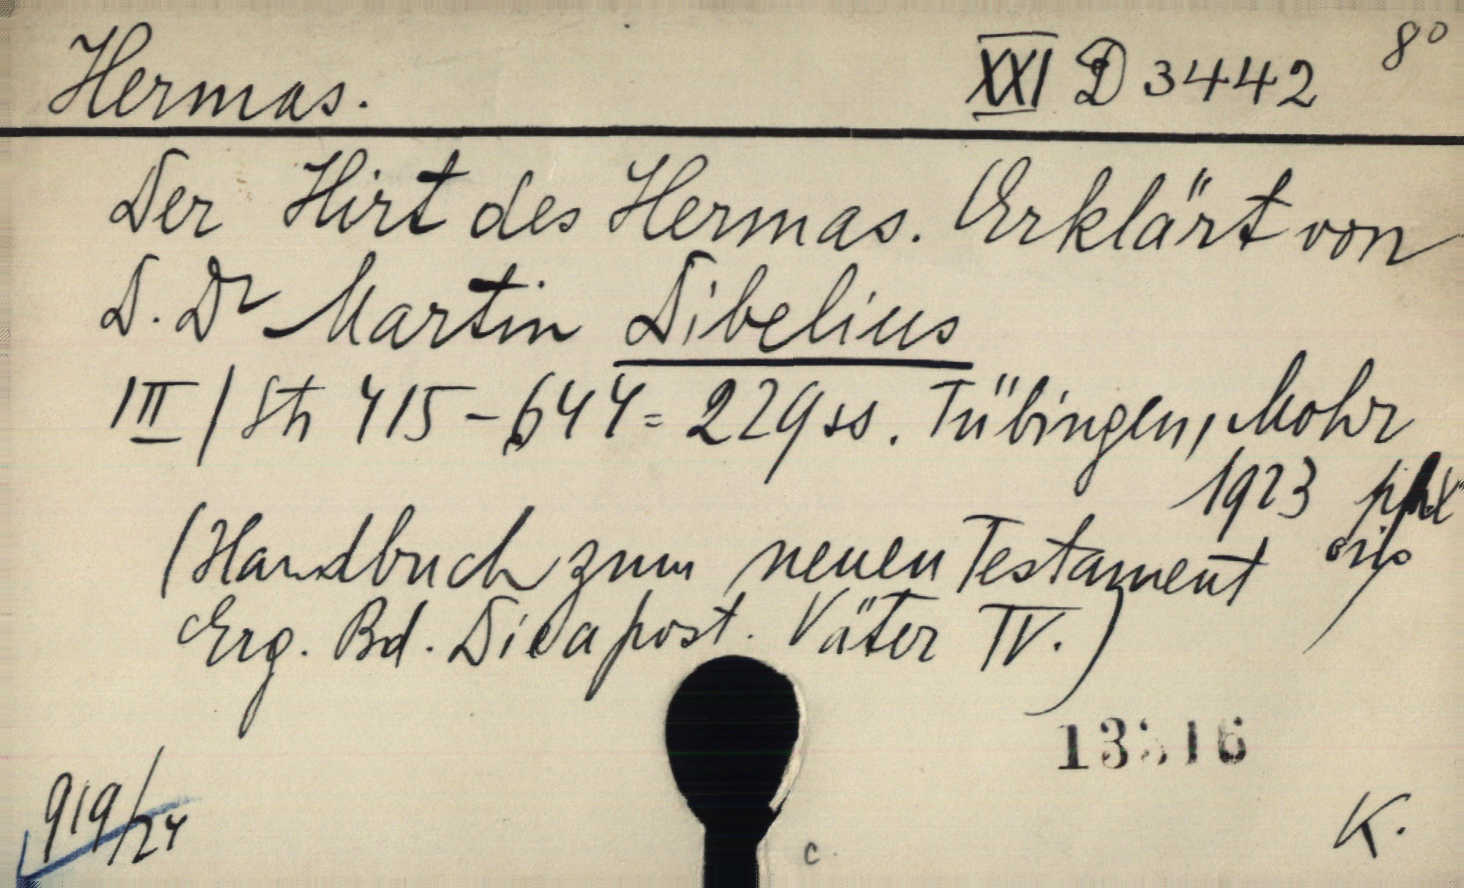 Hermas. XXI D 3442 8°
Der Hirt des Hermas. Erklärt von
D. Dr Martin Dibelius
III / Str 415-644 = 229 ss. Tübingen, Mohr
1923
(Handbuch zum neuen Testament
Erg. Bd. Die apost. Väter IV.)
919/24
K.
c